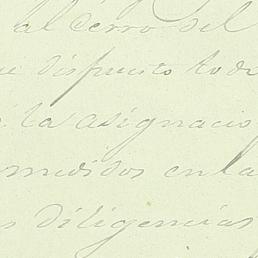 al cerro del
dispuesto tode
la asignacio
medidos en la
s diligencias